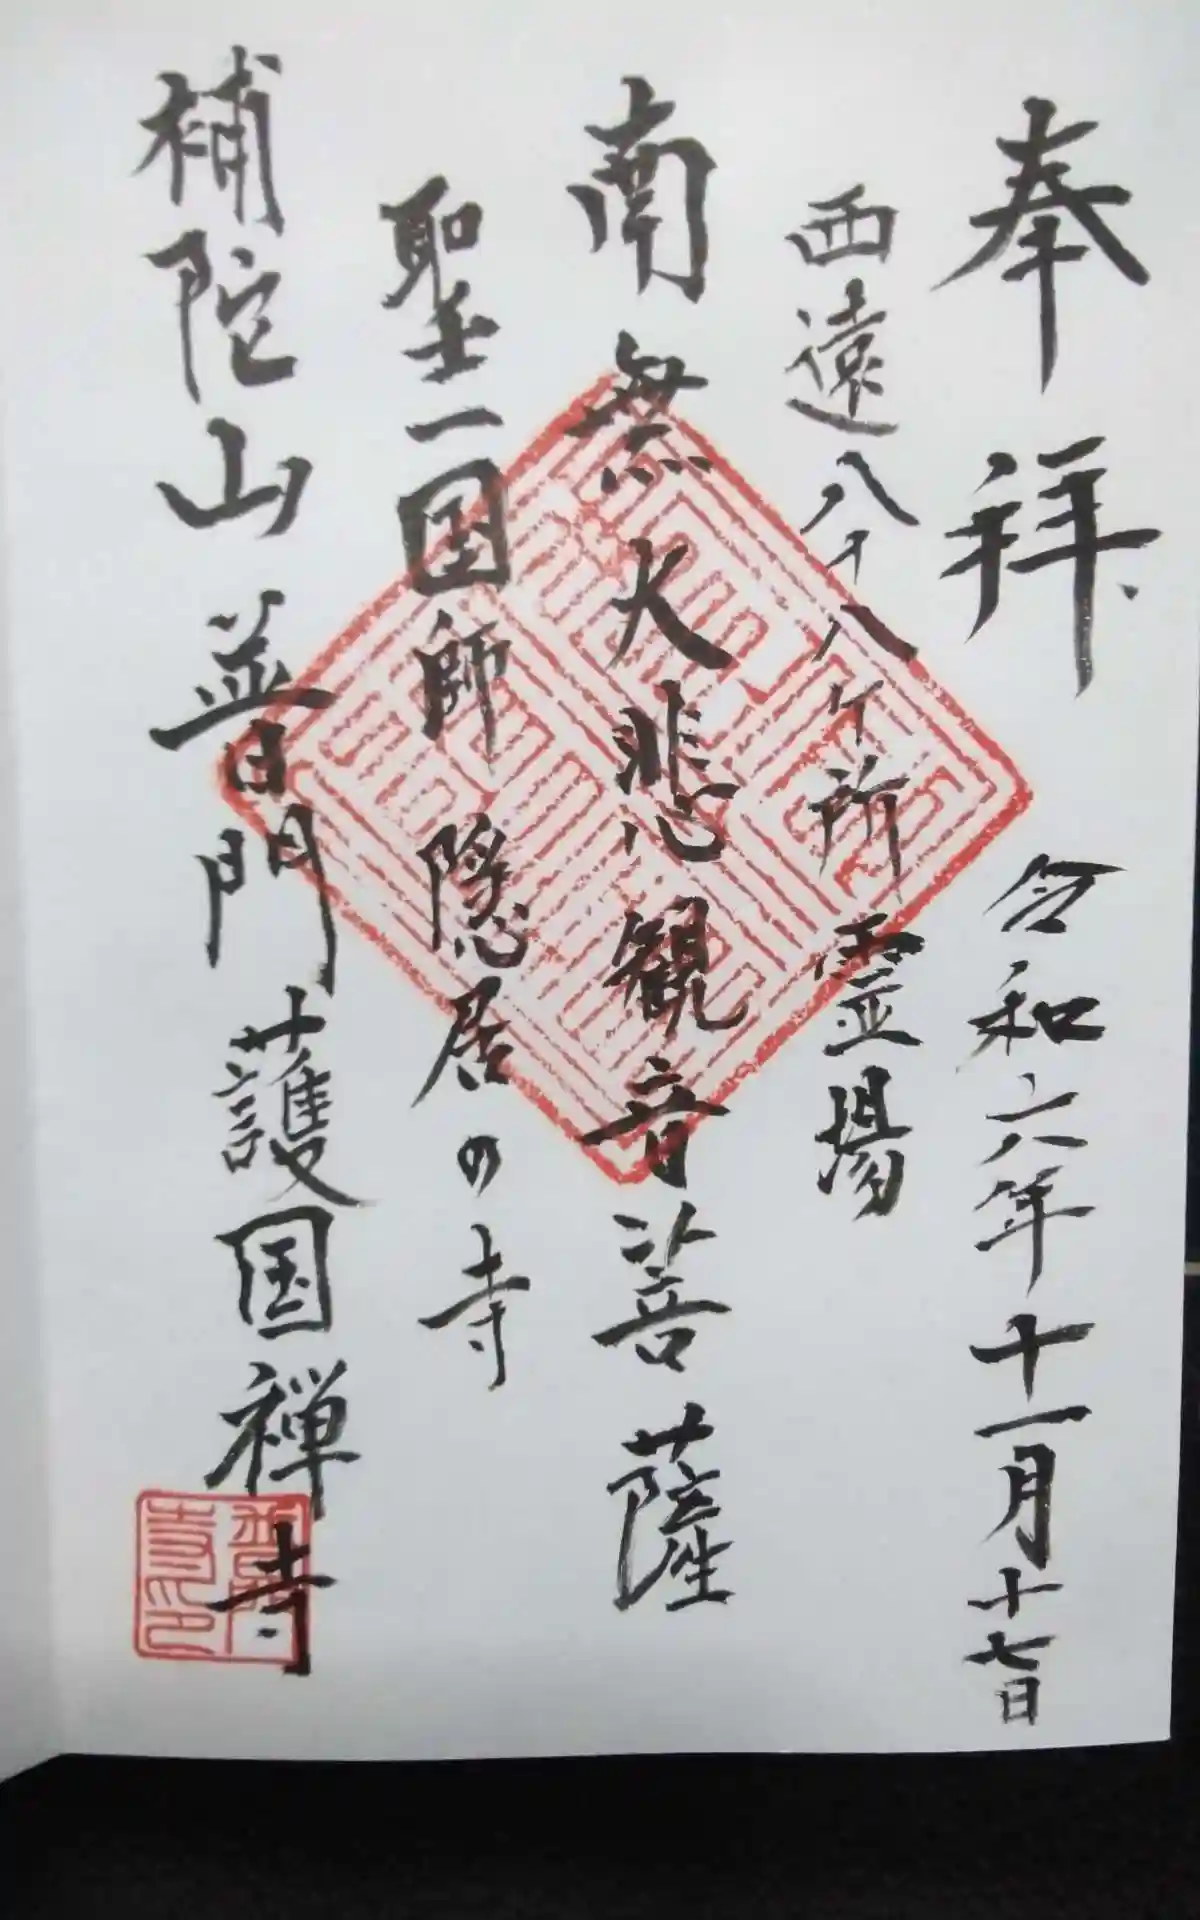 奉拝
令和六年十一月十七日
西遠八十八ケ所霊場
南無大悲観音菩薩
聖一国師隠居の寺
補陀山普門護国禅寺
普門寺印